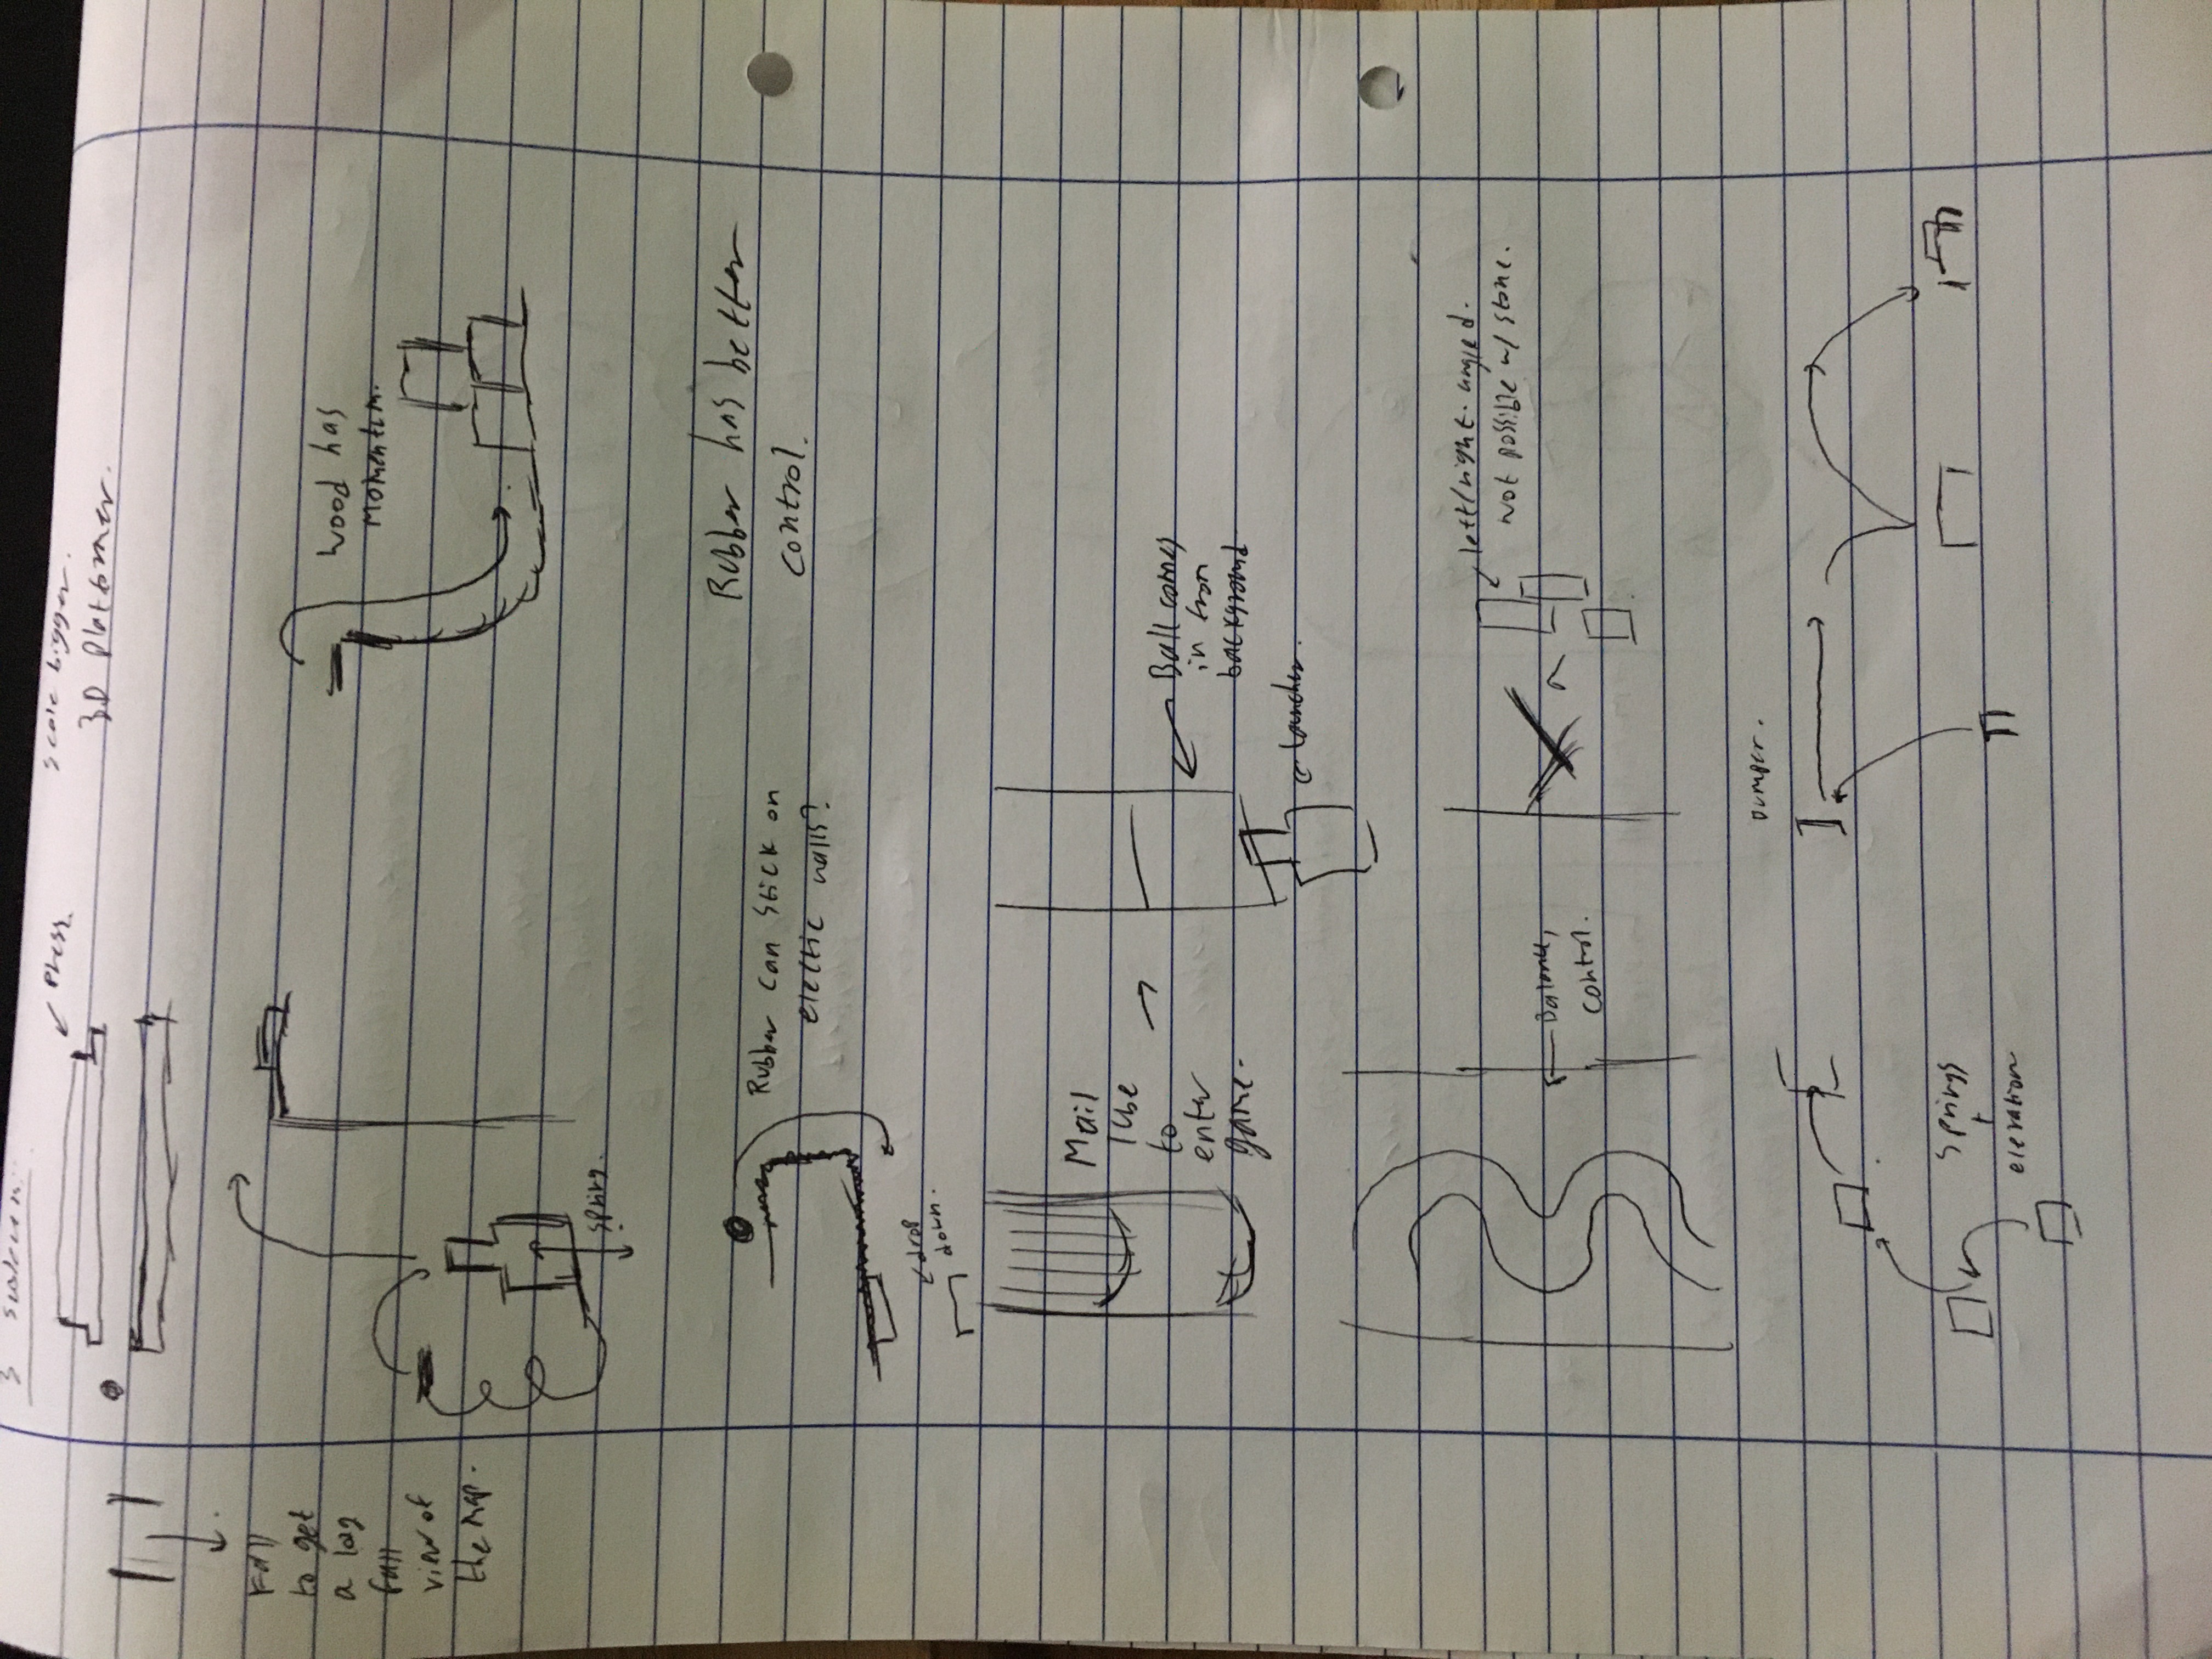 3
Press.
scale bigger.
3D Platformer.
Fall
to get
a log
fall
view of
the map.
Wood has
momentum.
spring.
Rubber can stick on
electic walls?
Rubber has better
control.
drop
down.
Mail
Tube
to
enter
game.
Ball comes
in from
background
launcher.
left/right. angled.
not possible w/ stone.
Balance,
control.
Bumper.
Springs
+
elevation